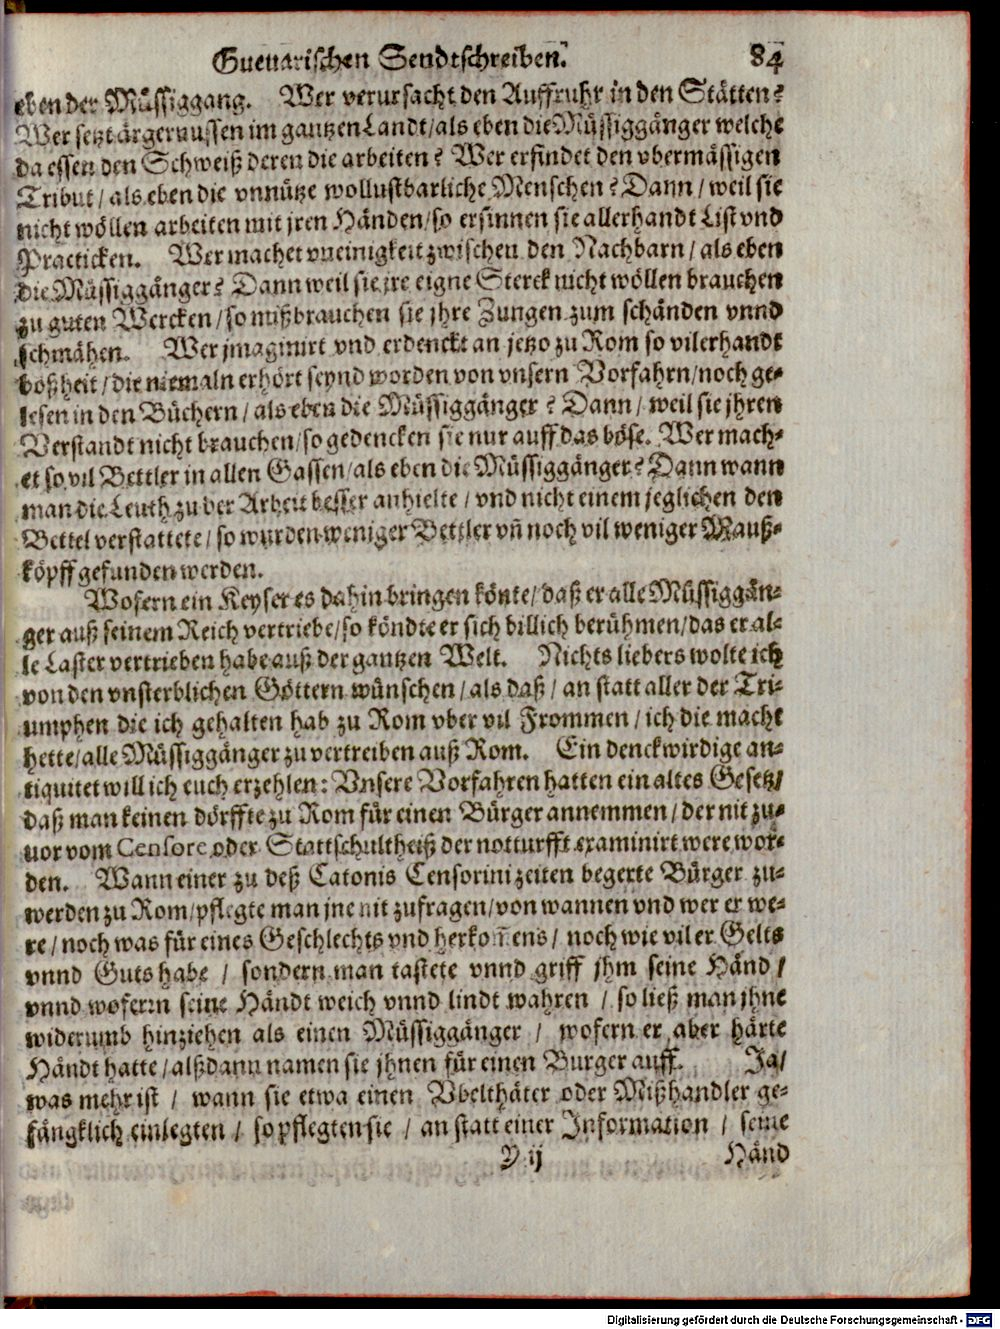 Guevarischen Sendtschreiben. 84
eben der Müssiggang. Wer verursacht den Auffruhr in den Stätten?
Wer setzt ärgernussen im gantzen Landt/als eben die Müssiggänger welche
da essen den Schweiß deren die arbeiten? Wer erfindet den vbermässigen
Tribut/als eben die vnnütze wollustbarliche Menschen? Dann/weil sie
nicht wöllen arbeiten mit jren Händen/so ersinnen sie allerhandt List vnd
Practicken. Wer machet vneinigkeit zwischen den Nachbarn/als eben
die Müssiggänger? Dann weil sie jre eigne Sterck nicht wöllen brauchen
zu guten Wercken/so mißbrauchen sie jhre Zungen zum schänden vnnd
schmähen. Wer jmaginirt vnd erdenckt an jetzo zu Rom so vilerhandt
boßheit/die niemaln erhört seynd worden von vnsern Vorfahrn/noch ge-
lesen in den Büchern/als eben die Müssiggänger? Dann/weil sie jhren
Verstandt nicht brauchen/so gedencken sie nur auff das böse. Wer mach-
et so vil Bettler in allen Gassen/als eben die Müssiggänger? Dann wann
man die Leuth zu der Arbeit besser anhielte/vnd nicht einem jeglichen den
Bettel verstattete/so wurden weniger Bettler vñ noch vil weniger Mauß-
köpff gefunden werden.
Wofern ein Keyser es dahin bringen könte/daß er alle Müssiggän-
ger auß seinem Reich vertriebe/so köndte er sich billich berühmen/das er al-
le Laster vertrieben habe auß der gantzen Welt. Nichts liebers wolte ich
von den vnsterblichen Göttern wünschen/als daß/an statt aller der Tri-
umphen die ich gehalten hab zu Rom vber vil Frommen/ich die macht
hette/alle Müssiggänger zu vertreiben auß Rom. Ein denckwirdige an-
tiquitet will ich euch erzehlen: Vnsere Vorfahren hatten ein altes Gesetz/
daß man keinen dörffte zu Rom für einen Bürger annemmen/der nit zu-
uor vom Censore oder Stattschultheiß der notturfft examinirt were wor-
den. Wann einer zu deß Catonis Censorini zeiten begerte Bürger zu-
werden zu Rom/pflegte man jne nit zufragen/von wannen vnd wer er we-
re/noch was für eines Geschlechts vnd herkom̃ens/noch wie vil er Gelts
vnnd Guts habe/sondern man tastete vnnd griff jhm seine Händ/
vnnd wofern seine Händt weich vnnd lindt wahren/so ließ man jhne
widerumb hinziehen als einen Müssiggänger/wofern er aber härte
Händt hatte/alßdann namen sie jhnen für einen Burger auff. Ja/
was mehr ist/wann sie etwa einen Vbelthäter oder Mißhandler ge-
fängklich einlegten/so pflegten sie/an statt einer Information/seine
Y ij Händ
Digitalisierung gefördert durch die Deutsche Forschungsgemeinschaft - DFG